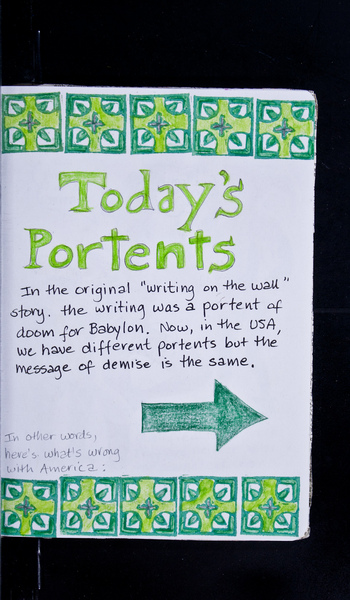 Today's
Portents
In the original "writing on the wall"
story. the writing was a portent of
doom for Babylon. Now, in the USA,
we have different portents but the
message of demise is the same.
In other words,
here's what's wrong
with America: